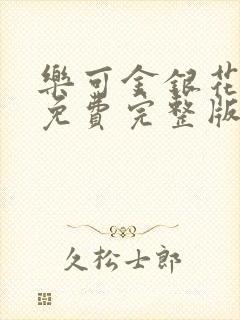 樂可金銀花
免費完整版
久松士郎